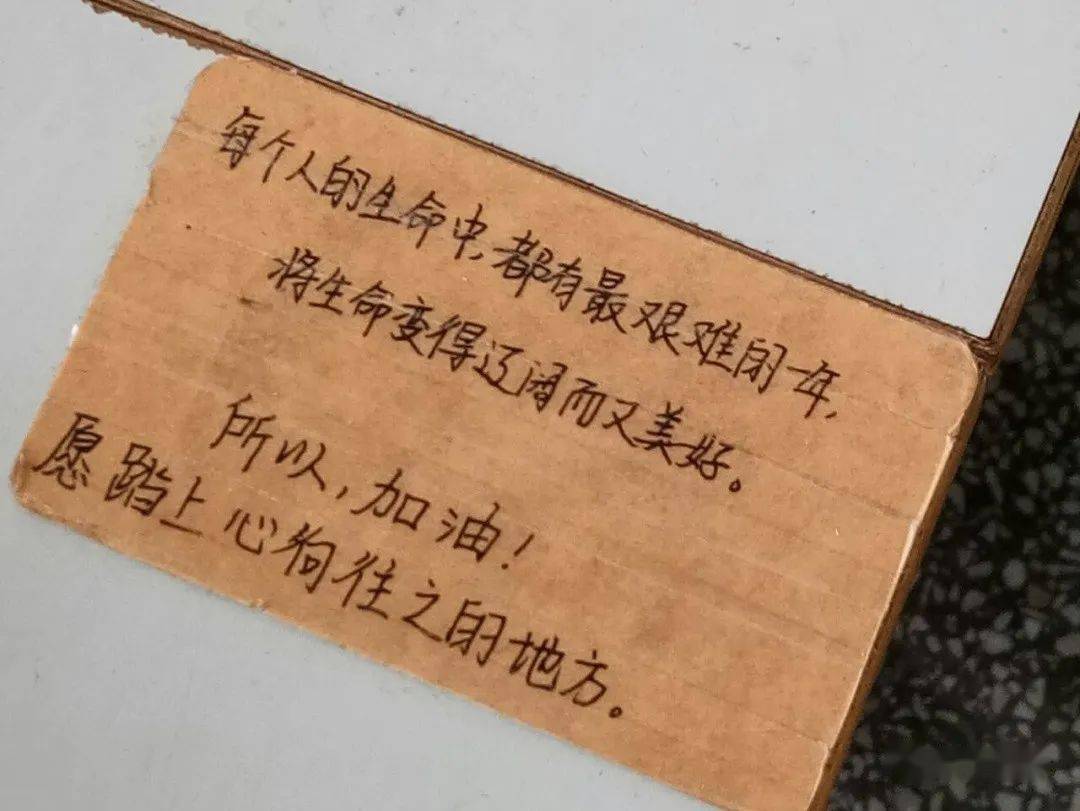 每个人的生命中,都有最艰难的一年,
将生命变得辽阔而又美好。
所以,加油!
愿踏上心徇往之的地方。